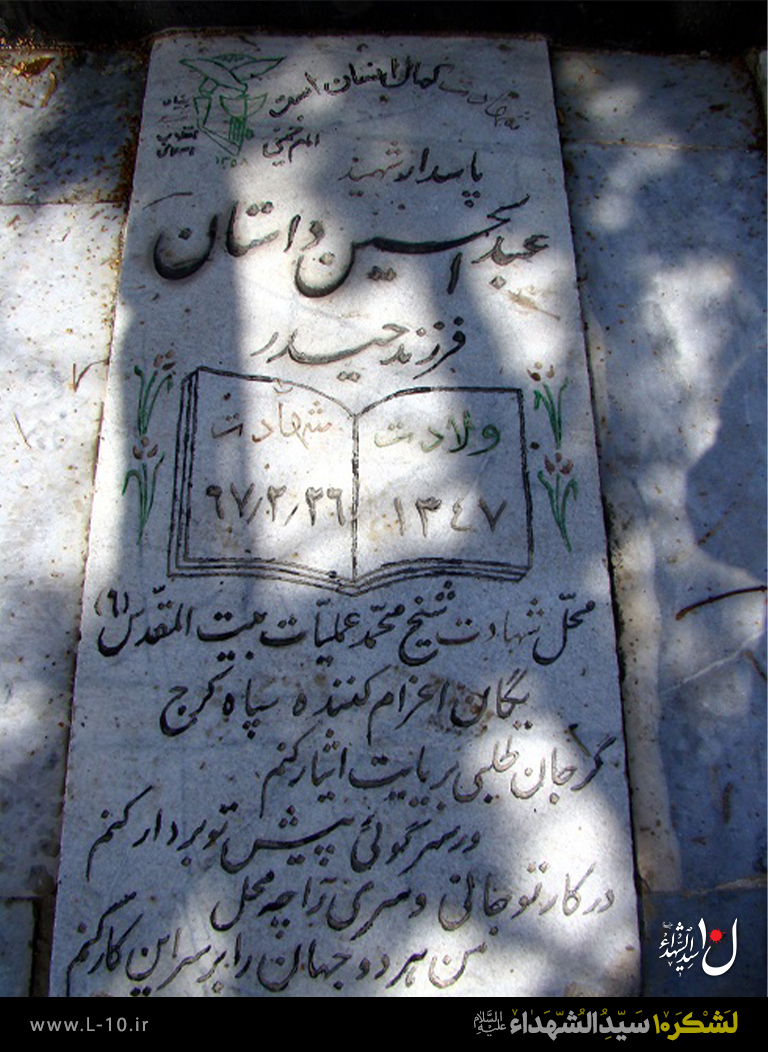 شهادت کمال انسان است
امام خمینی
بنیاد
انقلاب
اسلامی
۱۳۵۸
پاسدار شهید
عبدالحسین داستان
فرزند حیدر
ولادت
۱۳۴۷
شهادت
۶۷/۲/۲۶
محلّ شهادت شیخ محمّد عملیّات بیت المقدّس (۶)
یگان اعزام کننده سپاه کرج
گر جان طلبی برپایت ایثار کنم
ور سر گوئی پیش تو بردار کنم
در کار تو جانی و سری را چه محل
من هر دو جهان را بر سر این کار کنم
ل۱۰ سیدالشهداء
www.L-10.ir
لَشْکَر۱۰ سَیِّدُالشُّهَداء علیه السلام